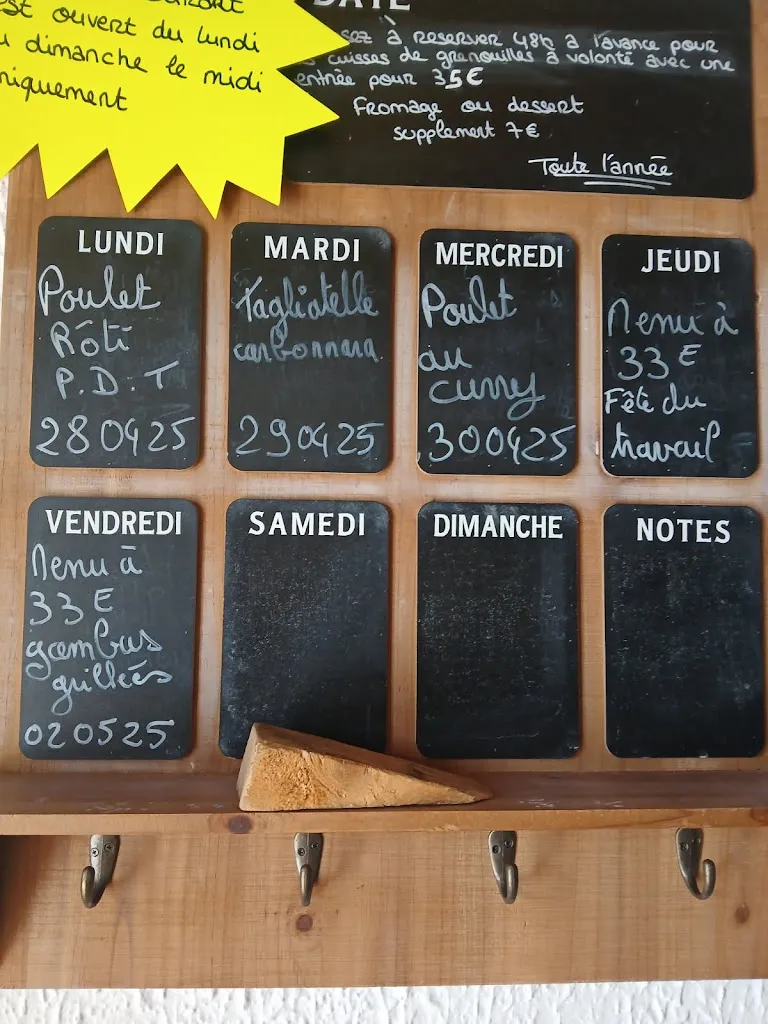 est ouvert du lundi
dimanche le midi
niquement
DATE
sez à reserver 48h a l'avance pour
cuisses de grenouilles à volonté avec une
entrée pour 35€
Fromage ou dessert
supplement 7€
Toute l'année
LUNDI
Poulet
Rôti
P.D.T
280425
MARDI
Tagliatelle
carbonnara
290425
MERCREDI
Poulet
au
curry
300425
JEUDI
Menu à
33 E
Fête du
travail
VENDREDI
Menu à
33 E
gambas
grillées
020525
SAMEDI
DIMANCHE
NOTES